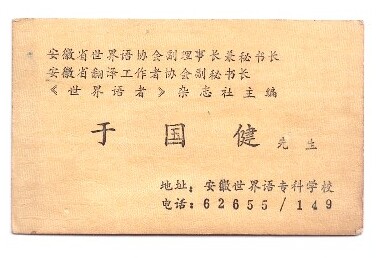 安徽省世界语协会副理事长兼秘书长
安徽省翻译工作者协会副秘书长
《世界语者》杂志社主编
于国健 先生
地址：安徽世界语专科学校
电话：62655/149